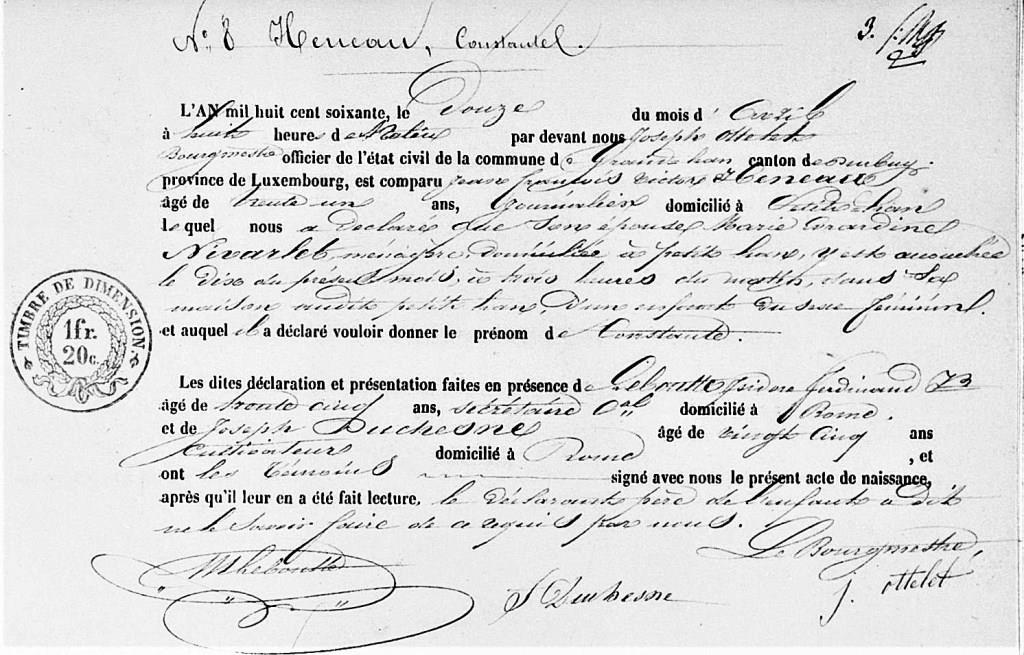 N.° 8 Heneau, Constante.
3.
L'AN mil huit cent soixante, le Douze du mois d' Avril
à huit heures de Matin par devant nous Joseph Ottelet
Bourgmestre officier de l'état civil de la commune de Grandhan canton de Durbuy.
province de Luxembourg, est comparu Jean françois Victor Heneau
âgé de trente un ans, journalier domicilié à Petit han
lequel nous a déclaré que son épouse Marie Girardine
Nivarlet, ménagère, domiciliée à petit han, y est accouchée
le dix du présent mois, à trois heures du matin, dans sa
maison audit petit han, d'un enfant du sexe féminin.
et auquel il a déclaré vouloir donner le prénom de Constante.
TIMBRE DE DIMENSION
1fr.
20c.
Les dites déclaration et présentation faites en présence de Leboutte Isidore Ferdinand
âgé de trente cinq ans, secrétaire Cal domicilié à Rome.
et de Joseph Duchesne âgé de vingt cinq ans
cultivateur domicilié à Rome , et
ont les témoins signé avec nous le présent acte de naissance,
après qu'il leur en a été fait lecture, le déclarant père de l'enfant a dit
ne le savoir faire de ce requis par nous.
Le Bourgmestre,
Leboutte
J Duchesne
J. Ottelet